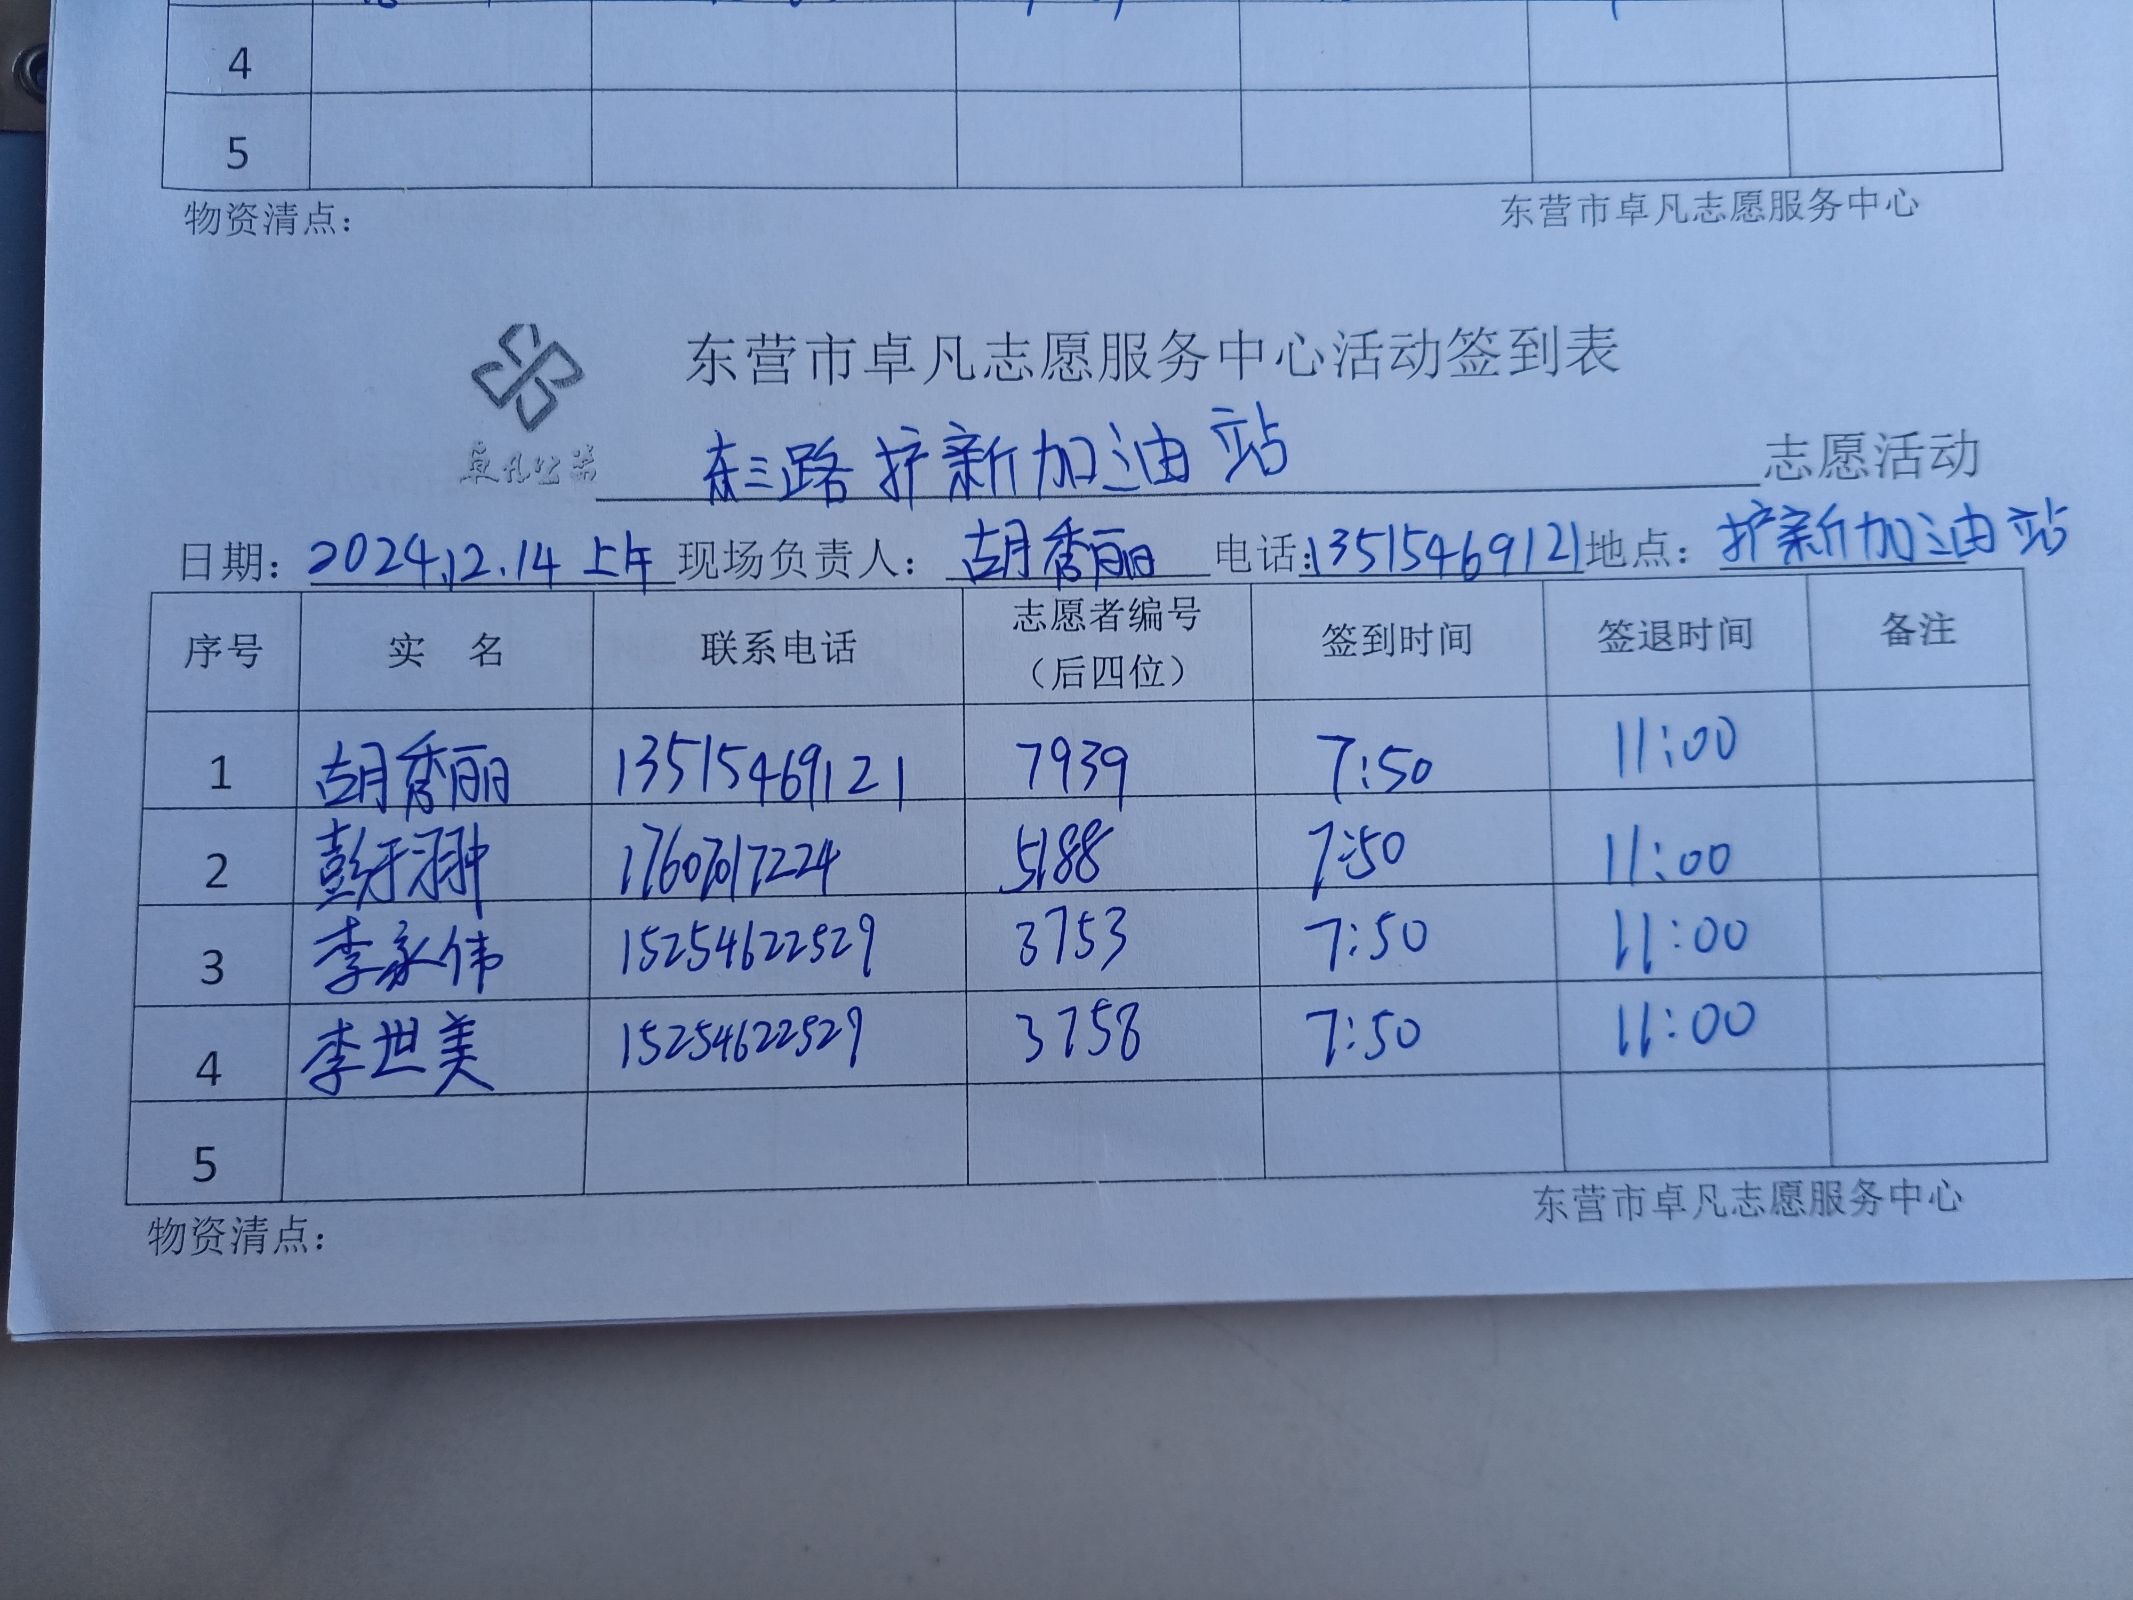 4
5
物资清点：
东营市卓凡志愿服务中心
东营市卓凡志愿服务中心活动签到表
卓凡公益
东三路护新加油站 志愿活动
日期：2024.12.14上午 现场负责人：胡秀丽 电话：13515469121 地点：护新加油站
序号 实 名 联系电话 志愿者编号（后四位） 签到时间 签退时间 备注
1 胡秀丽 13515469121 7939 7:50 11:00
2 彭子翀 17607017224 5188 7:50 11:00
3 李永伟 15254622529 3753 7:50 11:00
4 李世美 15254622529 3758 7:50 11:00
5
物资清点：
东营市卓凡志愿服务中心